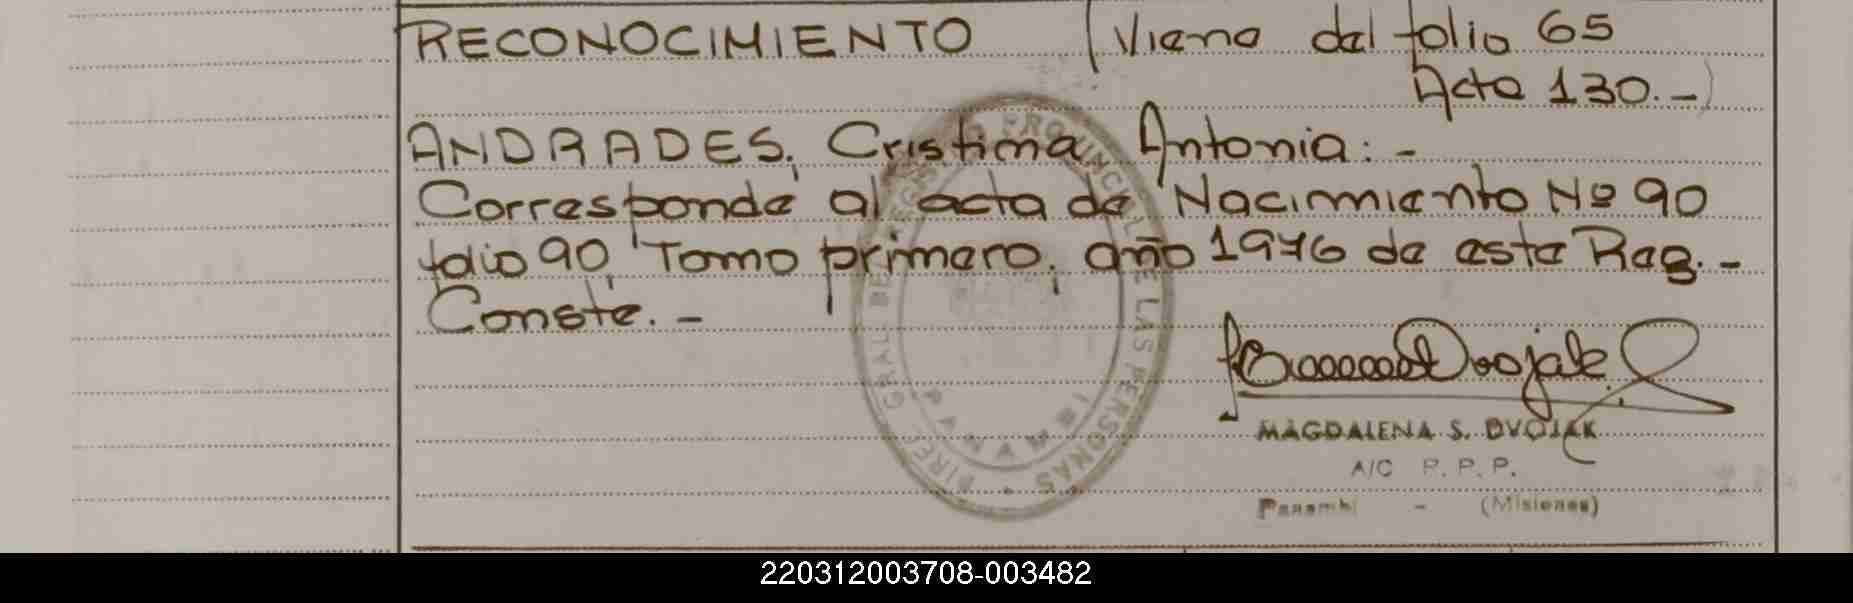 RECONOCIMIENTO (Viene del folio 65
Acta 130.-)
ANDRADES, Cristina Antonia:-
Corresponde al acta de Nacimiento Nº 90
folio 90, Tomo primero, año 1976 de este Reg.-
Conste.-
DIREC. GRAL. DEL REGISTRO PROVINCIAL DE LAS PERSONAS
PANAMBI
MAGDALENA S. DVOJAK
A/C R. P. P.
Panambi - (Misiones)
220312003708-003482